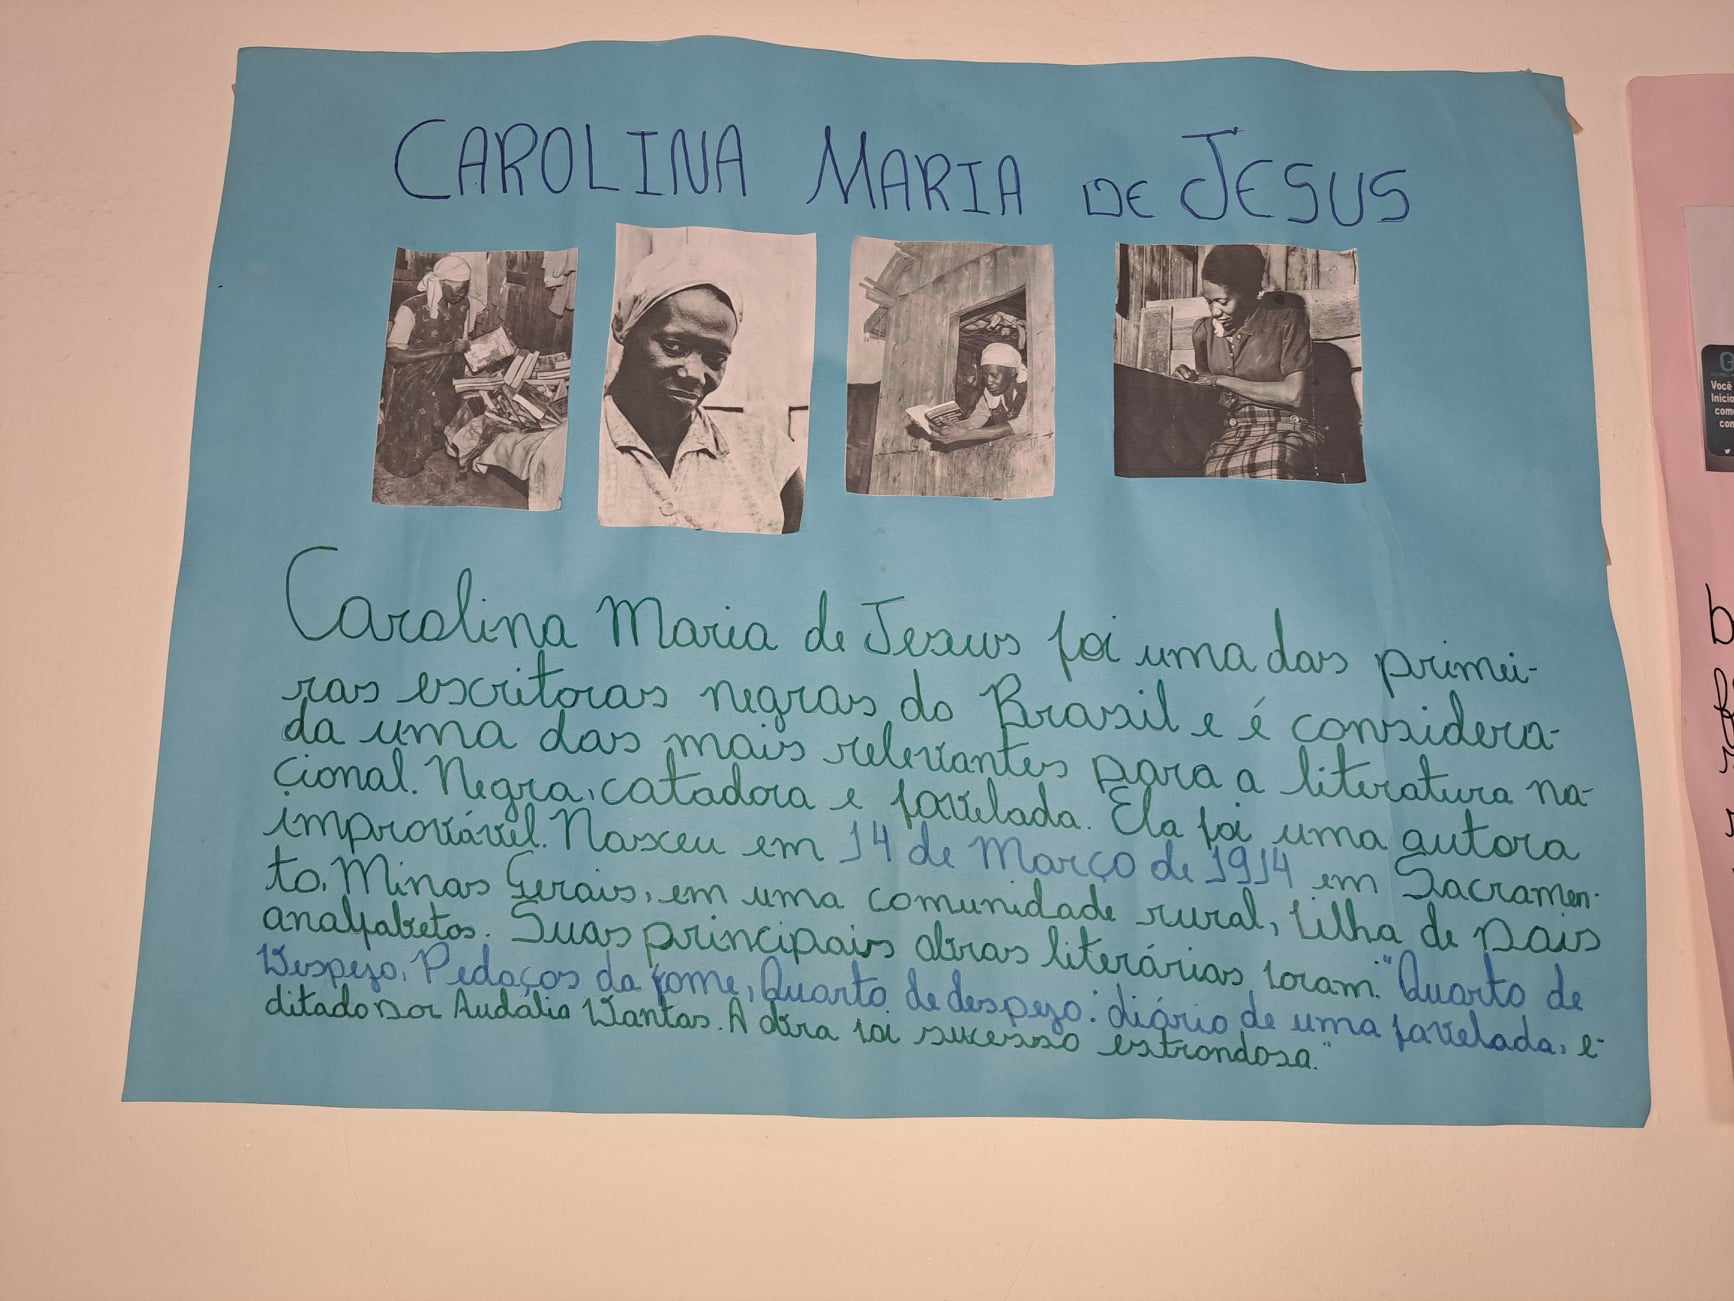 CAROLINA MARIA DE JESUS
Carolina Maria de Jesus foi uma das primei-
ras escritoras negras do Brasil e é considera-
da uma das mais relevantes para a literatura na-
cional. Negra, catadora e favelada. Ela foi uma autora
improvável. Nasceu em 14 de Março de 1914 em Sacramen-
to, Minas Gerais, em uma comunidade rural, filha de pais
analfabetos. Suas principais obras literárias foram: "Quarto de
Despejo, Pedaços da fome, Quarto de despejo: diário de uma favelada, e-
ditado por Audálio Dantas. A obra foi sucesso estrondosa."
Você